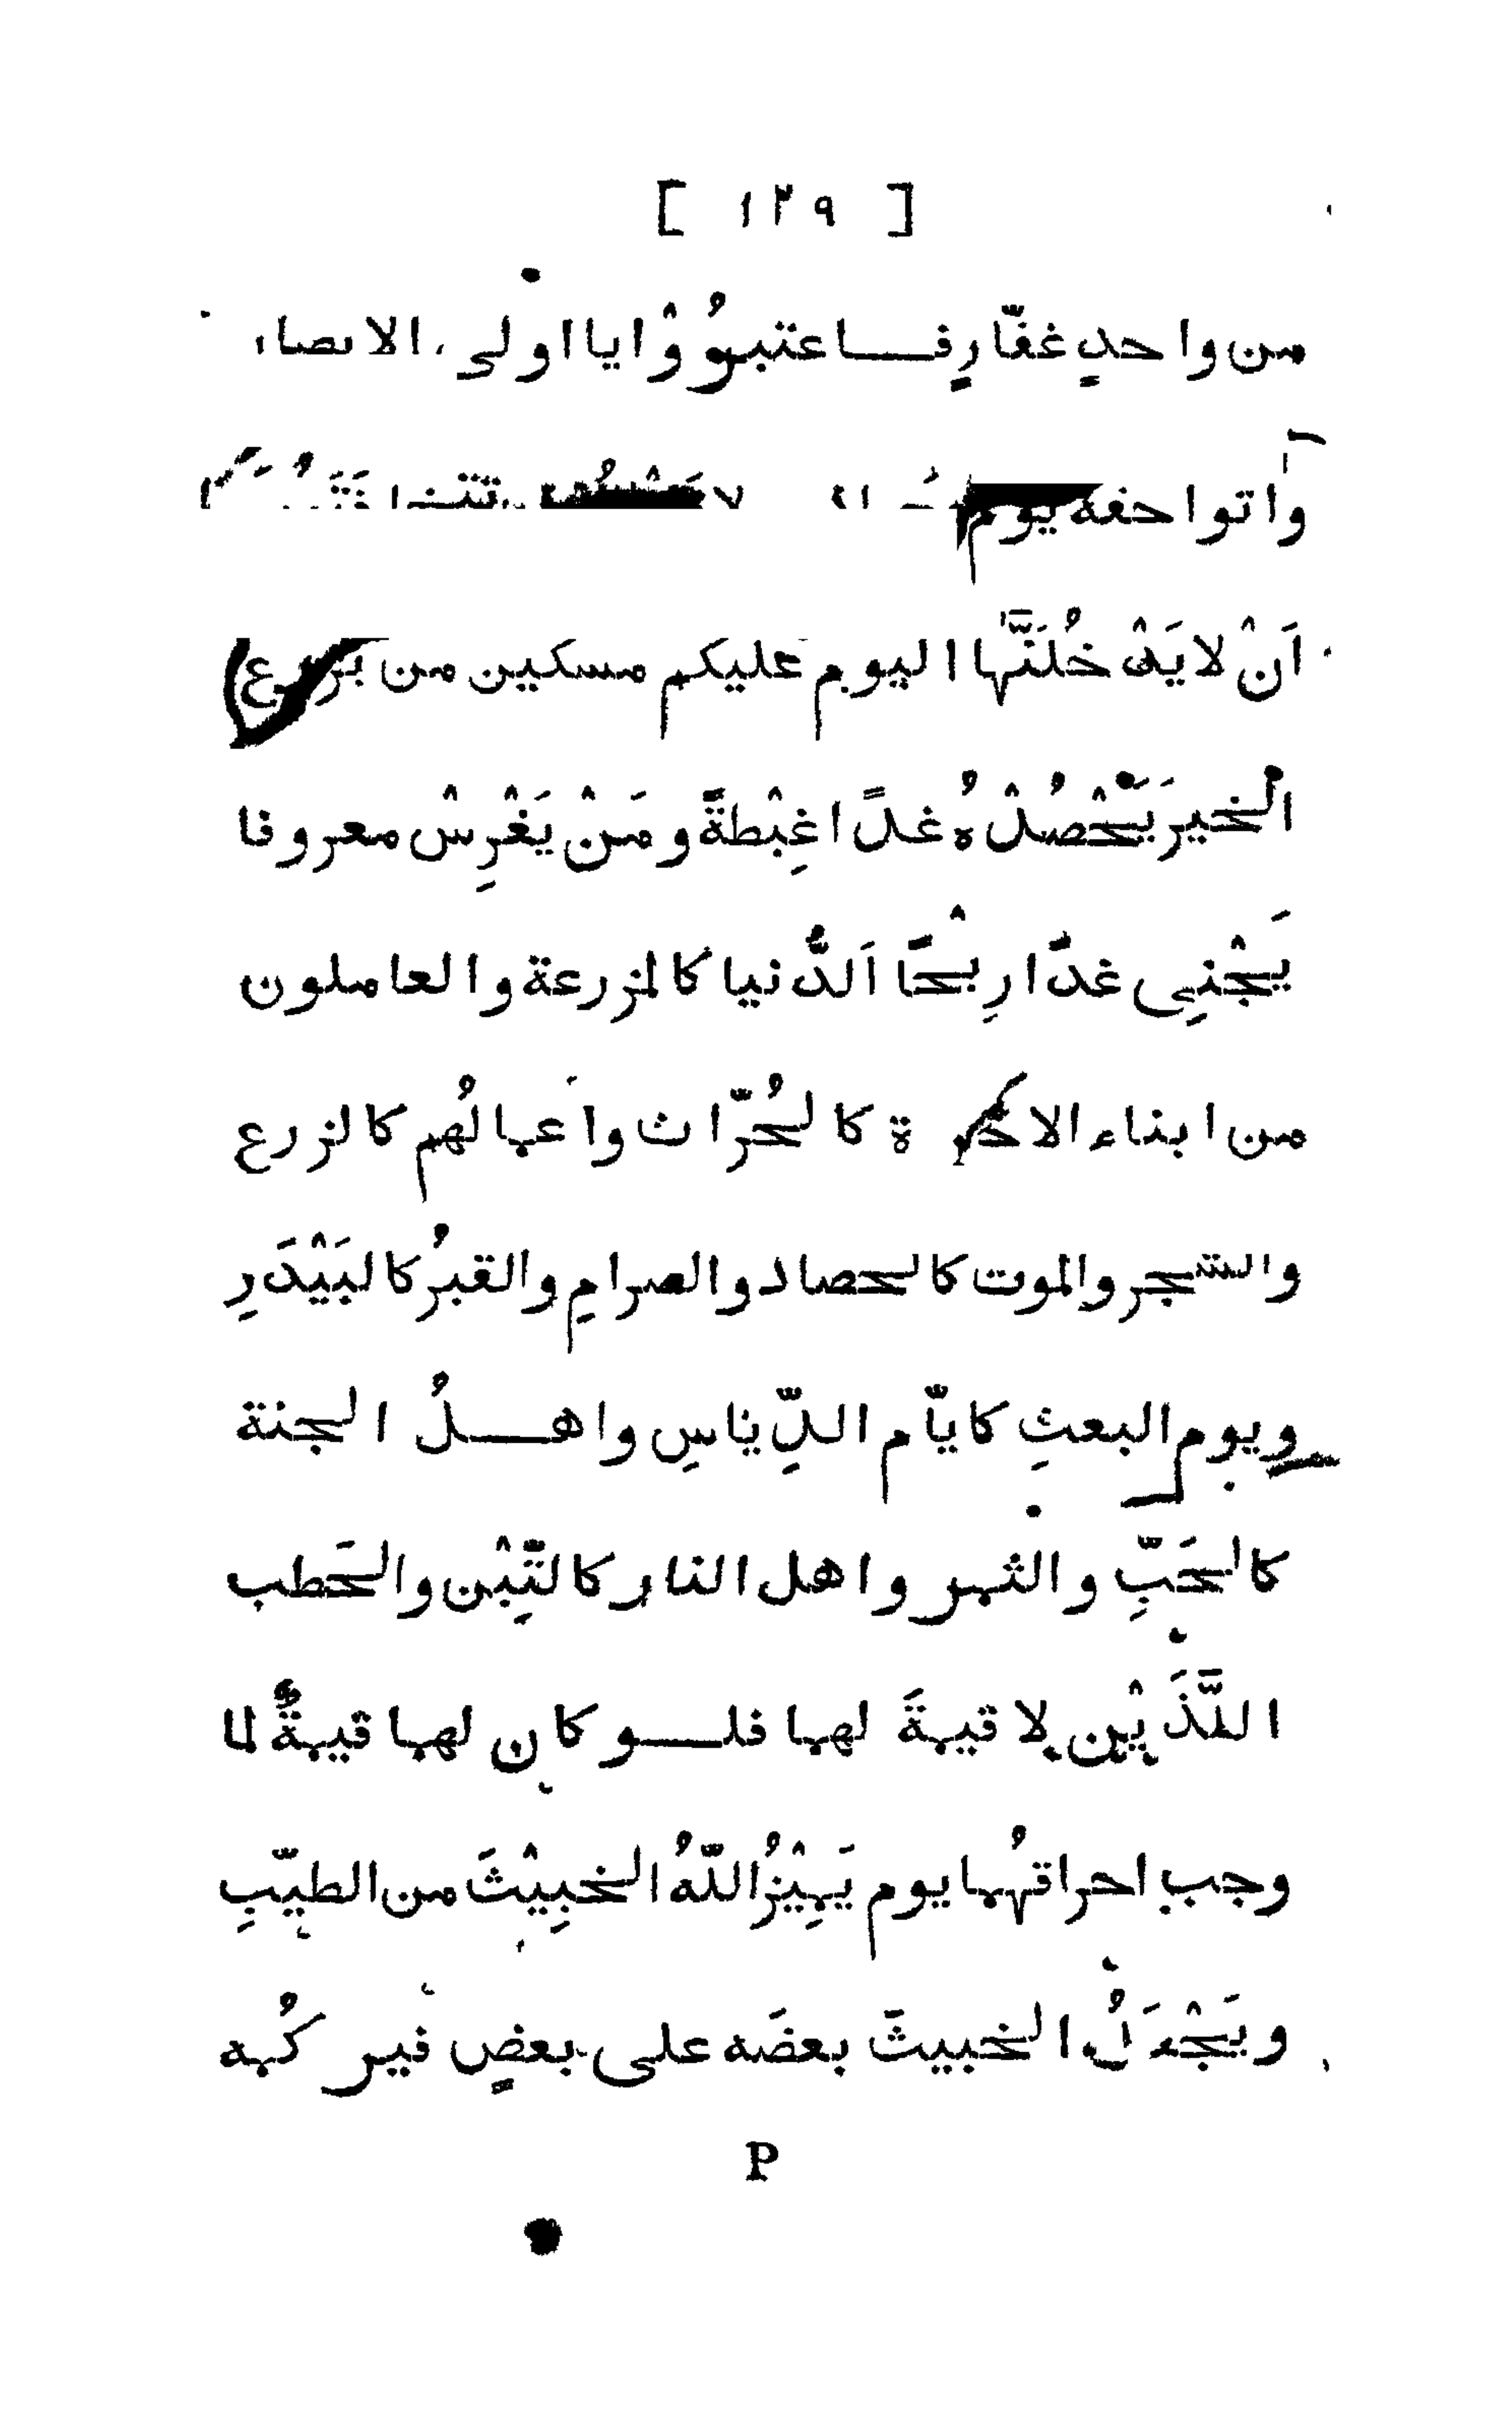 [ ١٢٩ ]
من واحدٍ غفّارٍ فاعتبروُوْا يا اولى الابصار
واتوا حقه يوم
اَنْ لا يَدْخُلَنَّها اليوم عليكم مسكين من يزرع
الخيرَ يَحْصُدْهُ غدًا غِبْطةً ومَنْ يَغْرِسْ معروفا
يَجْنِى غدًا رِبْحًا اَلدُّنيا كالمزرعة والعاملون
من ابناء الاخرة كالحُرّاث واَعمالُهم كالزرع
والشجر والموت كالحصاد والصرامِ والقبرُ كالبَيْدَرِ
ويوم البعثِ كايّام الدِّياسِ واهلُ الجنة
كالحَبِّ والثمر واهل النار كالتِّبْن والحَطب
اللَّذَيْن لا قيمةَ لهما فلو كان لهما قيمةٌ لما
وجب احراقهُما يوم يَمِيْزُ اللّٰهُ الخبِيْثَ من الطيّبِ
ويَجْعَلُ الخبيثَ بعضَه على بعضٍ فيركُمه
P